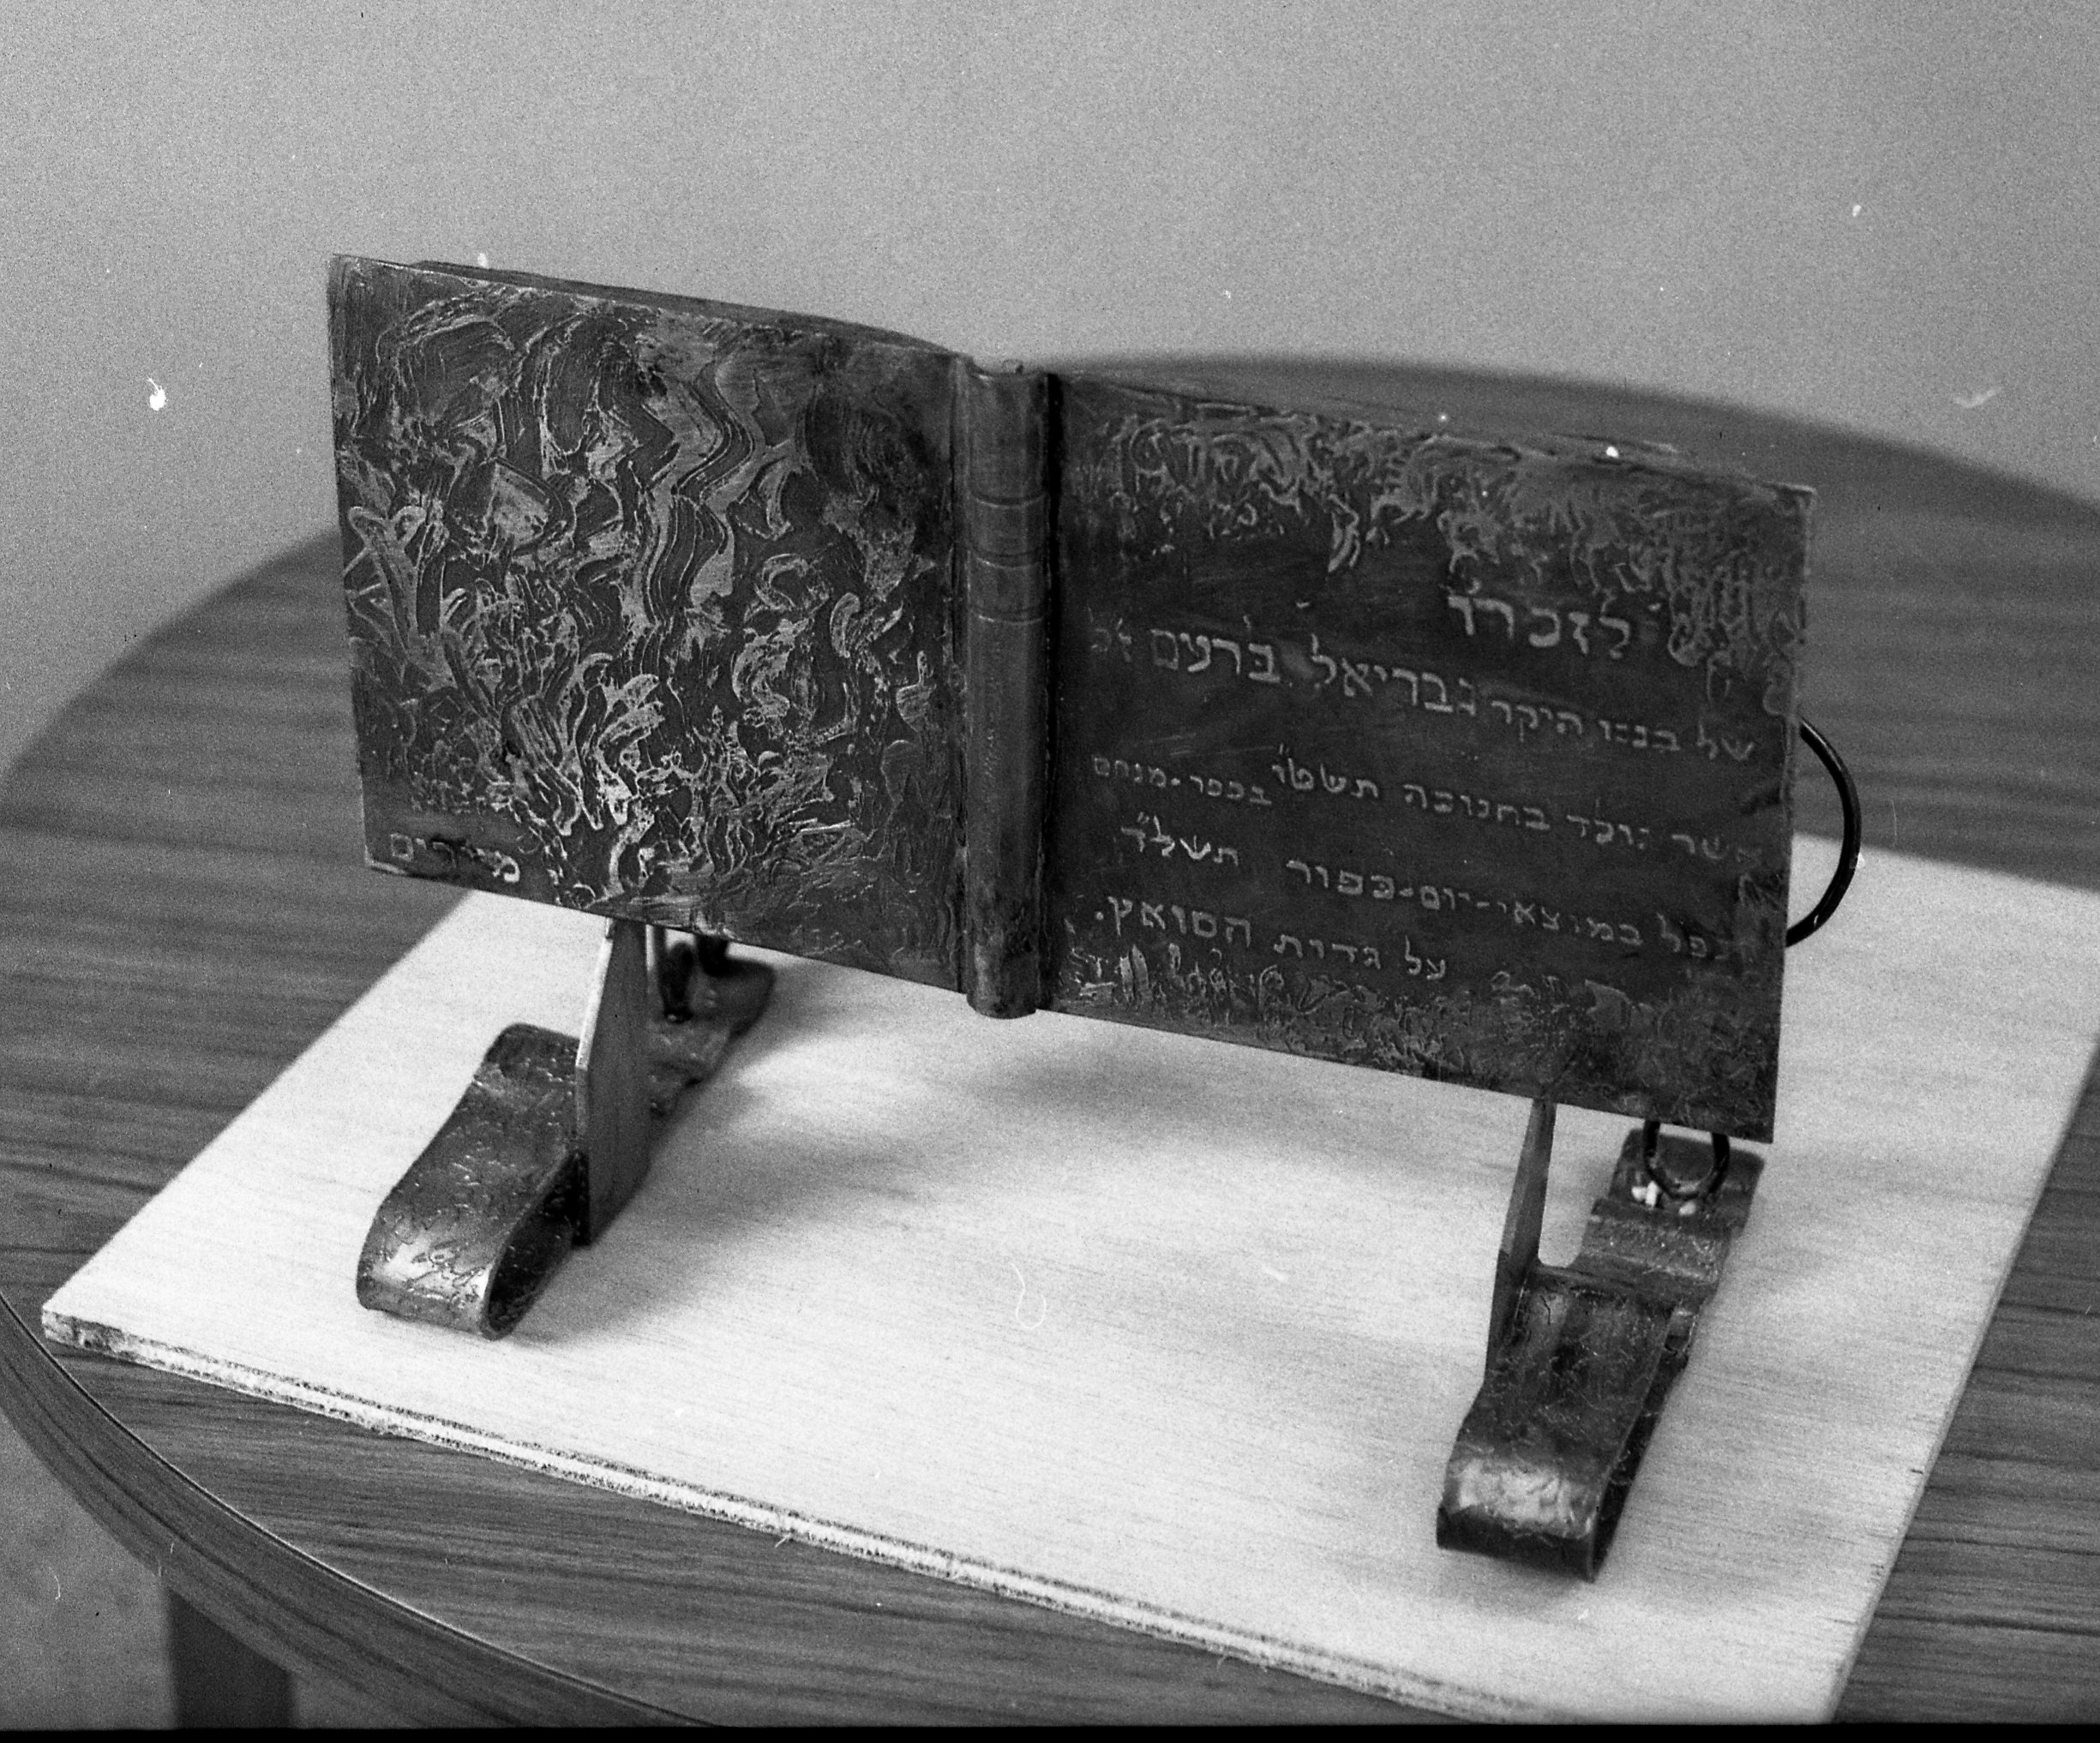 לזכרו
של בננו היקר גבריאל ברעם ז"ל
אשר נולד בחנוכה תשט"ו בכפר-מנחם
נפל במוצאי-יום-כפור תשל"ד
על גדות הסואץ.